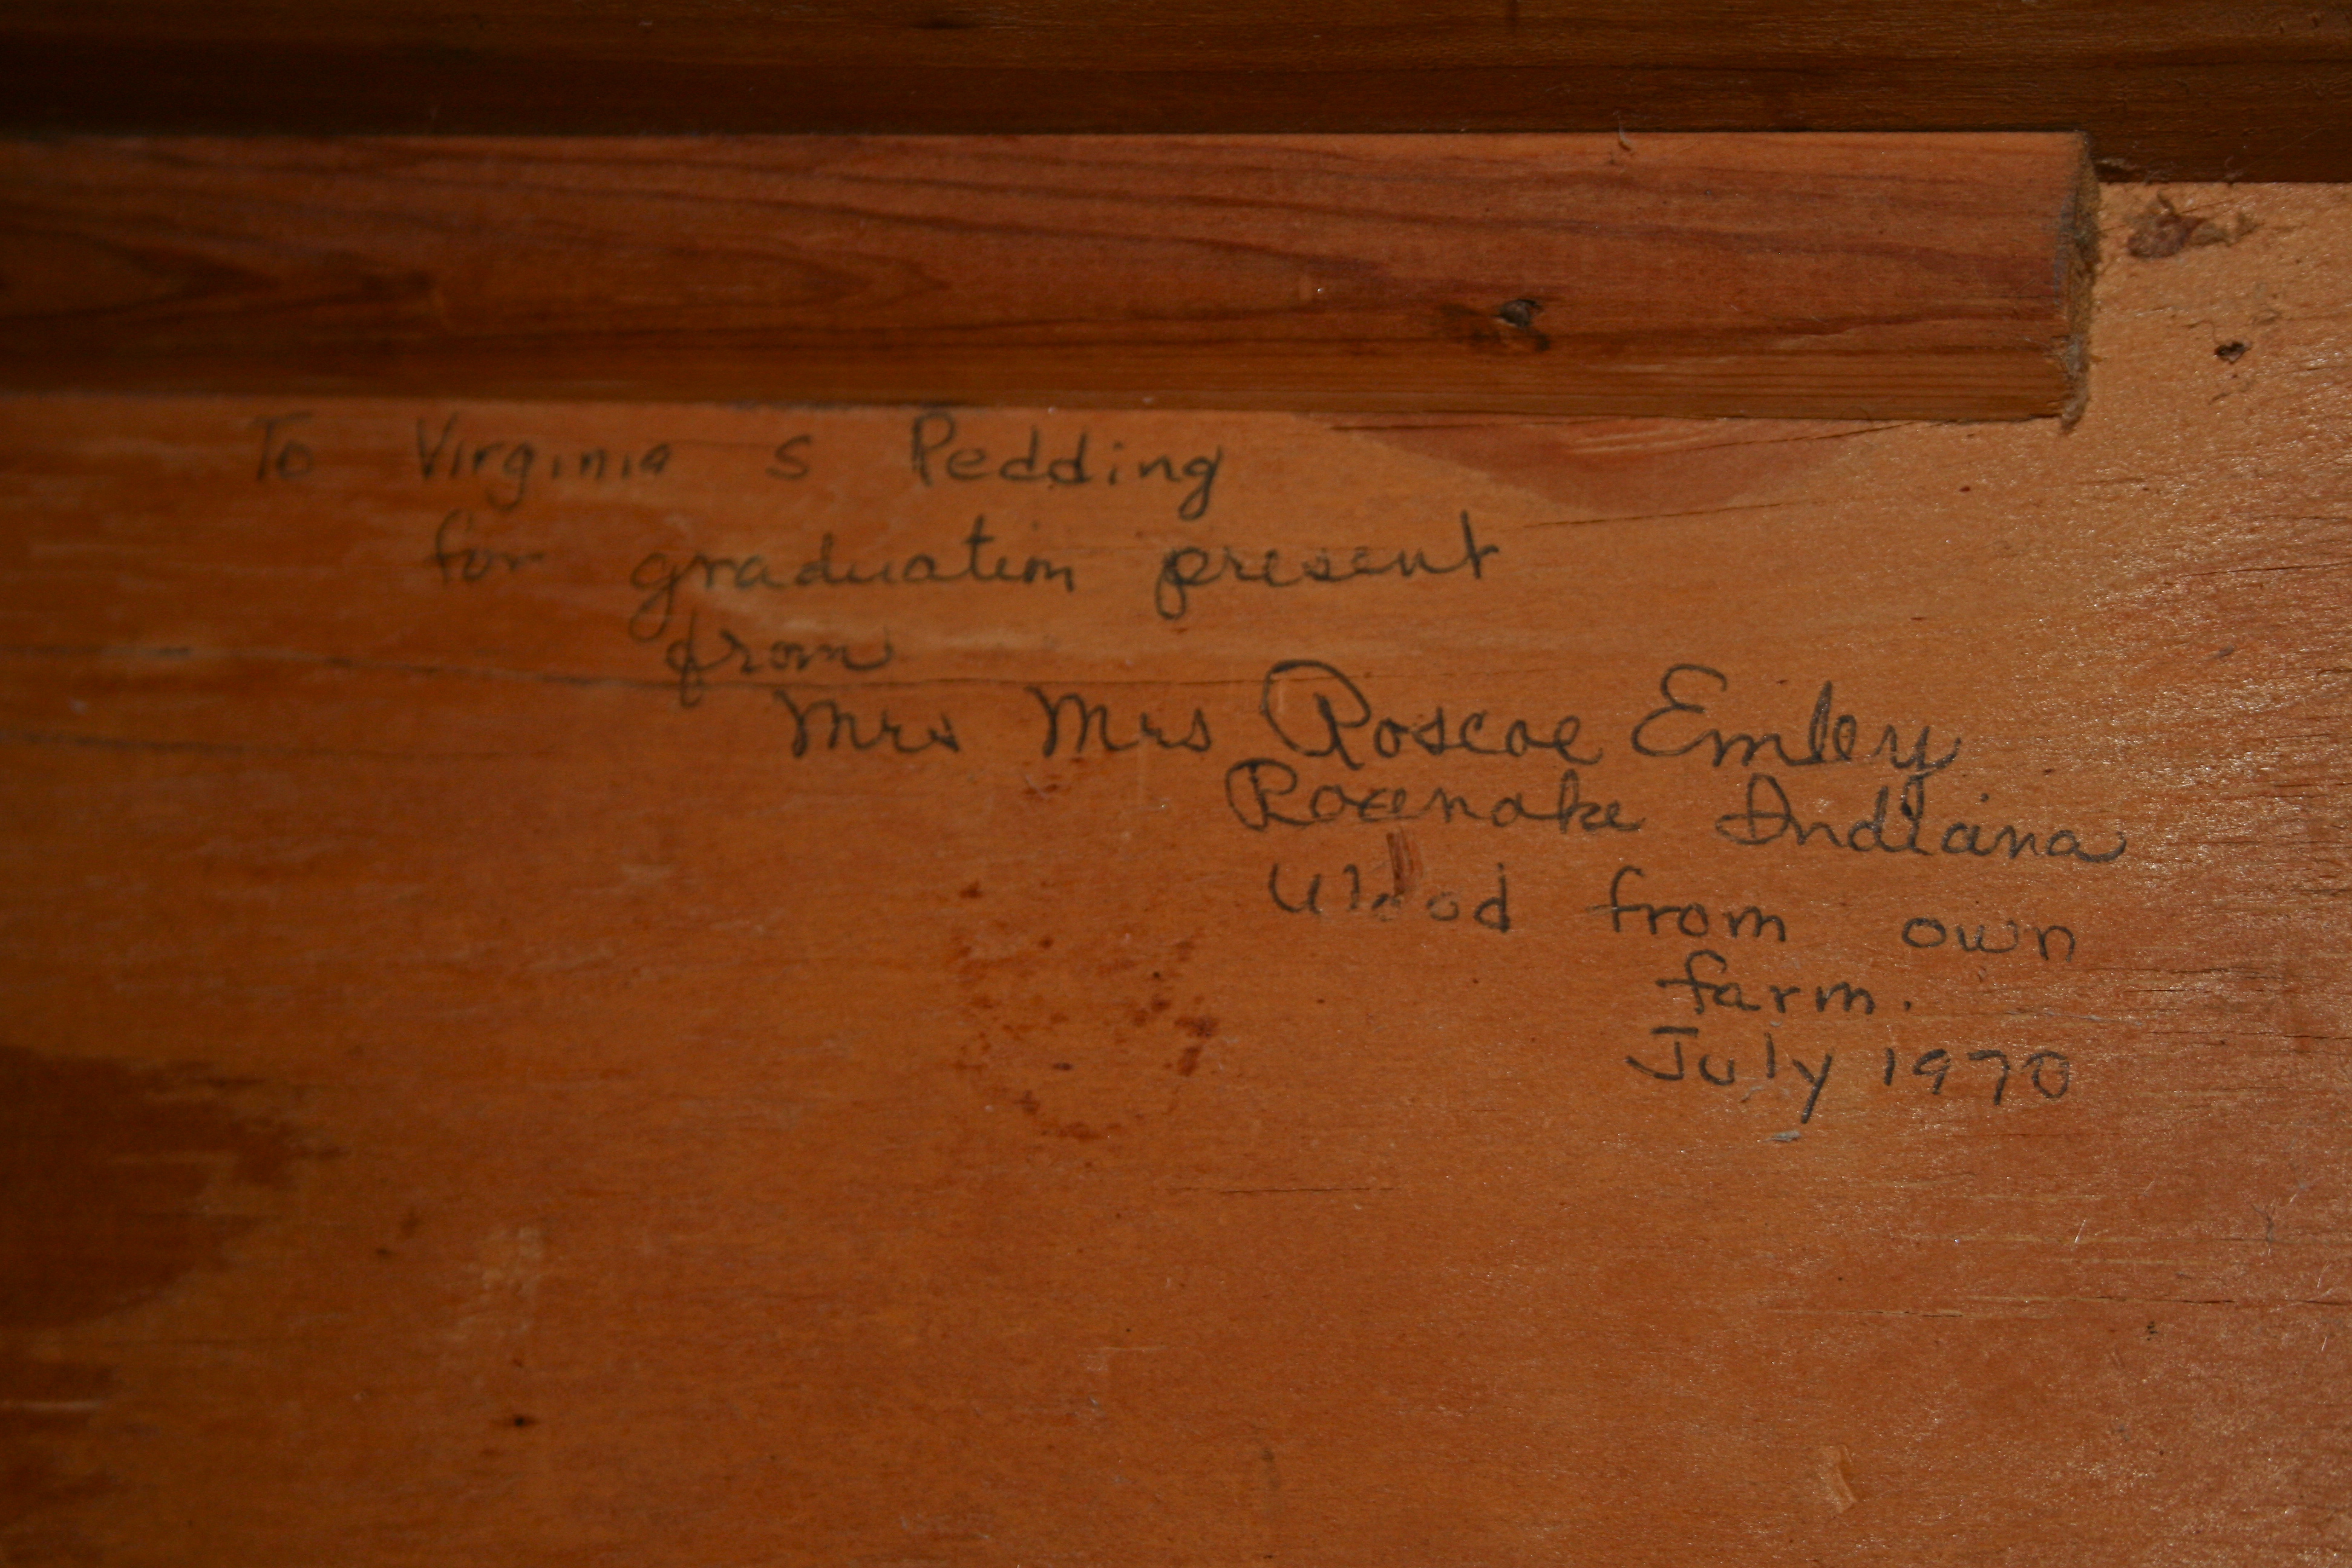 To Virginia S Pedding
for graduation present
from
Mrs Mrs Roscoe Emley
Roxenoke Indiana
Wood from own
farm.
July 1970